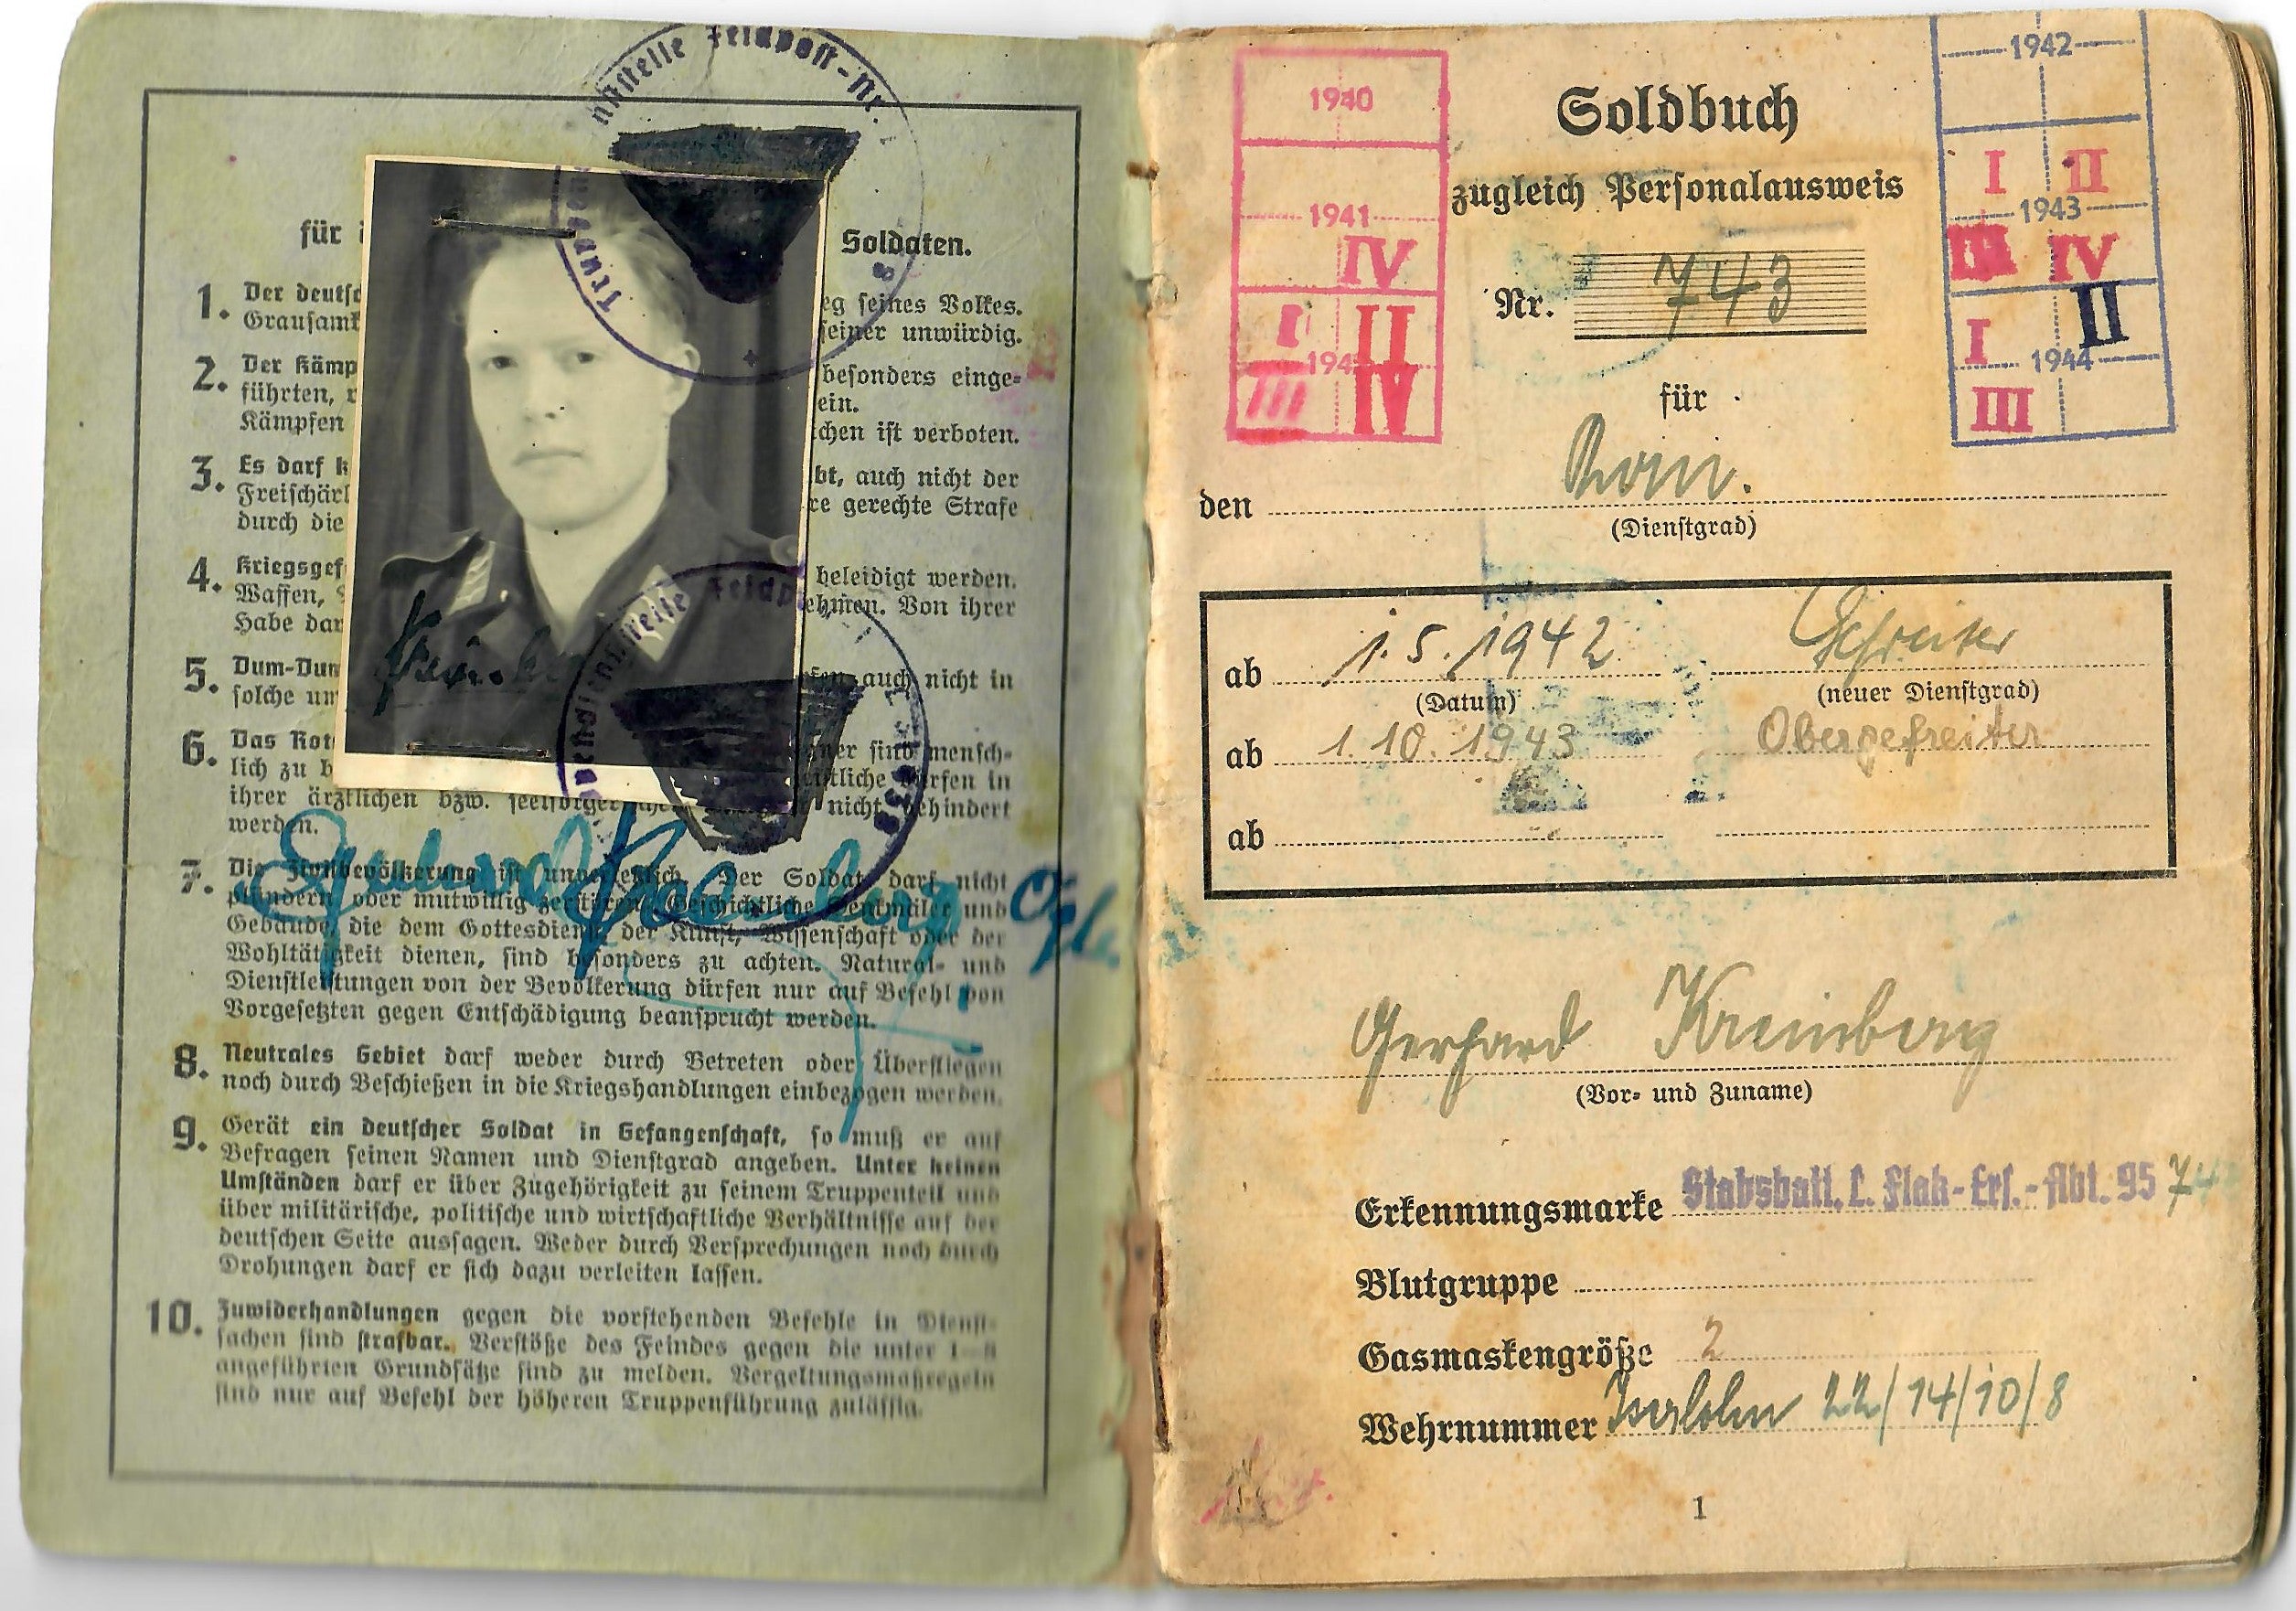 für
Soldaten.
1. Der deutsc
eg seines Volkes.
Grausamk
seiner unwürdig.
2. Der Kämp
besonders einge-
führten,
ein.
Kämpfen
chen ist verboten.
3. Es darf k
bt, auch nicht der
Freischärl
re gerechte Strafe
durch die
4. Kriegsgef
beleidigt werden.
Waffen,
ehmen. Von ihrer
Habe dar
5. Dum-Dum
auch nicht in
solche um
6. Das Rot
ner sind mensch-
lich zu b
istliche dürfen in
ihrer ärztlichen bzw. seelsorger
nicht behindert
werden.
7. Die Zivilbevölkerung ist unverletzlich. Der Soldat darf nicht
plündern oder mutwillig zerstören. Geschichtliche Denkmäler und
Gebäude, die dem Gottesdienst, der Kunst, Wissenschaft oder der
Wohltätigkeit dienen, sind besonders zu achten. Natural- und
Dienstleistungen von der Bevölkerung dürfen nur auf Befehl von
Vorgesetzten gegen Entschädigung beansprucht werden.
8. Neutrales Gebiet darf weder durch Betreten oder Überfliegen
noch durch Beschießen in die Kriegshandlungen einbezogen werden.
9. Gerät ein deutscher Soldat in Gefangenschaft, so muß er auf
Befragen seinen Namen und Dienstgrad angeben. Unter keinen
Umständen darf er über Zugehörigkeit zu seinem Truppenteil und
über militärische, politische und wirtschaftliche Verhältnisse auf der
deutschen Seite aussagen. Weder durch Versprechungen noch durch
Drohungen darf er sich dazu verleiten lassen.
10. Zuwiderhandlungen gegen die vorstehenden Befehle in Dienst-
sachen sind strafbar. Verstöße des Feindes gegen die unter 1–8
angeführten Grundsätze sind zu melden. Vergeltungsmaßregeln
sind nur auf Befehl der höheren Truppenführung zulässig.
Feldpost-Nr.
1940
1941
IV
I II
III IV
1942
I II
1943
III IV
I II
1944
III
Soldbuch
zugleich Personalausweis
Nr. 743
für
den
(Dienstgrad)
ab 1.5.1942 Gefreiter
(Datum) (neuer Dienstgrad)
ab 1.10.1943 Obergefreiter
ab
Gerhard Kreinberg
(Vor- und Zuname)
Erkennungsmarke Stabsbatt. l. Flak-Ers.-Abt. 95 743
Blutgruppe
Gasmaskengröße 2
Wehrnummer Iserlohn 22/14/10/8
1